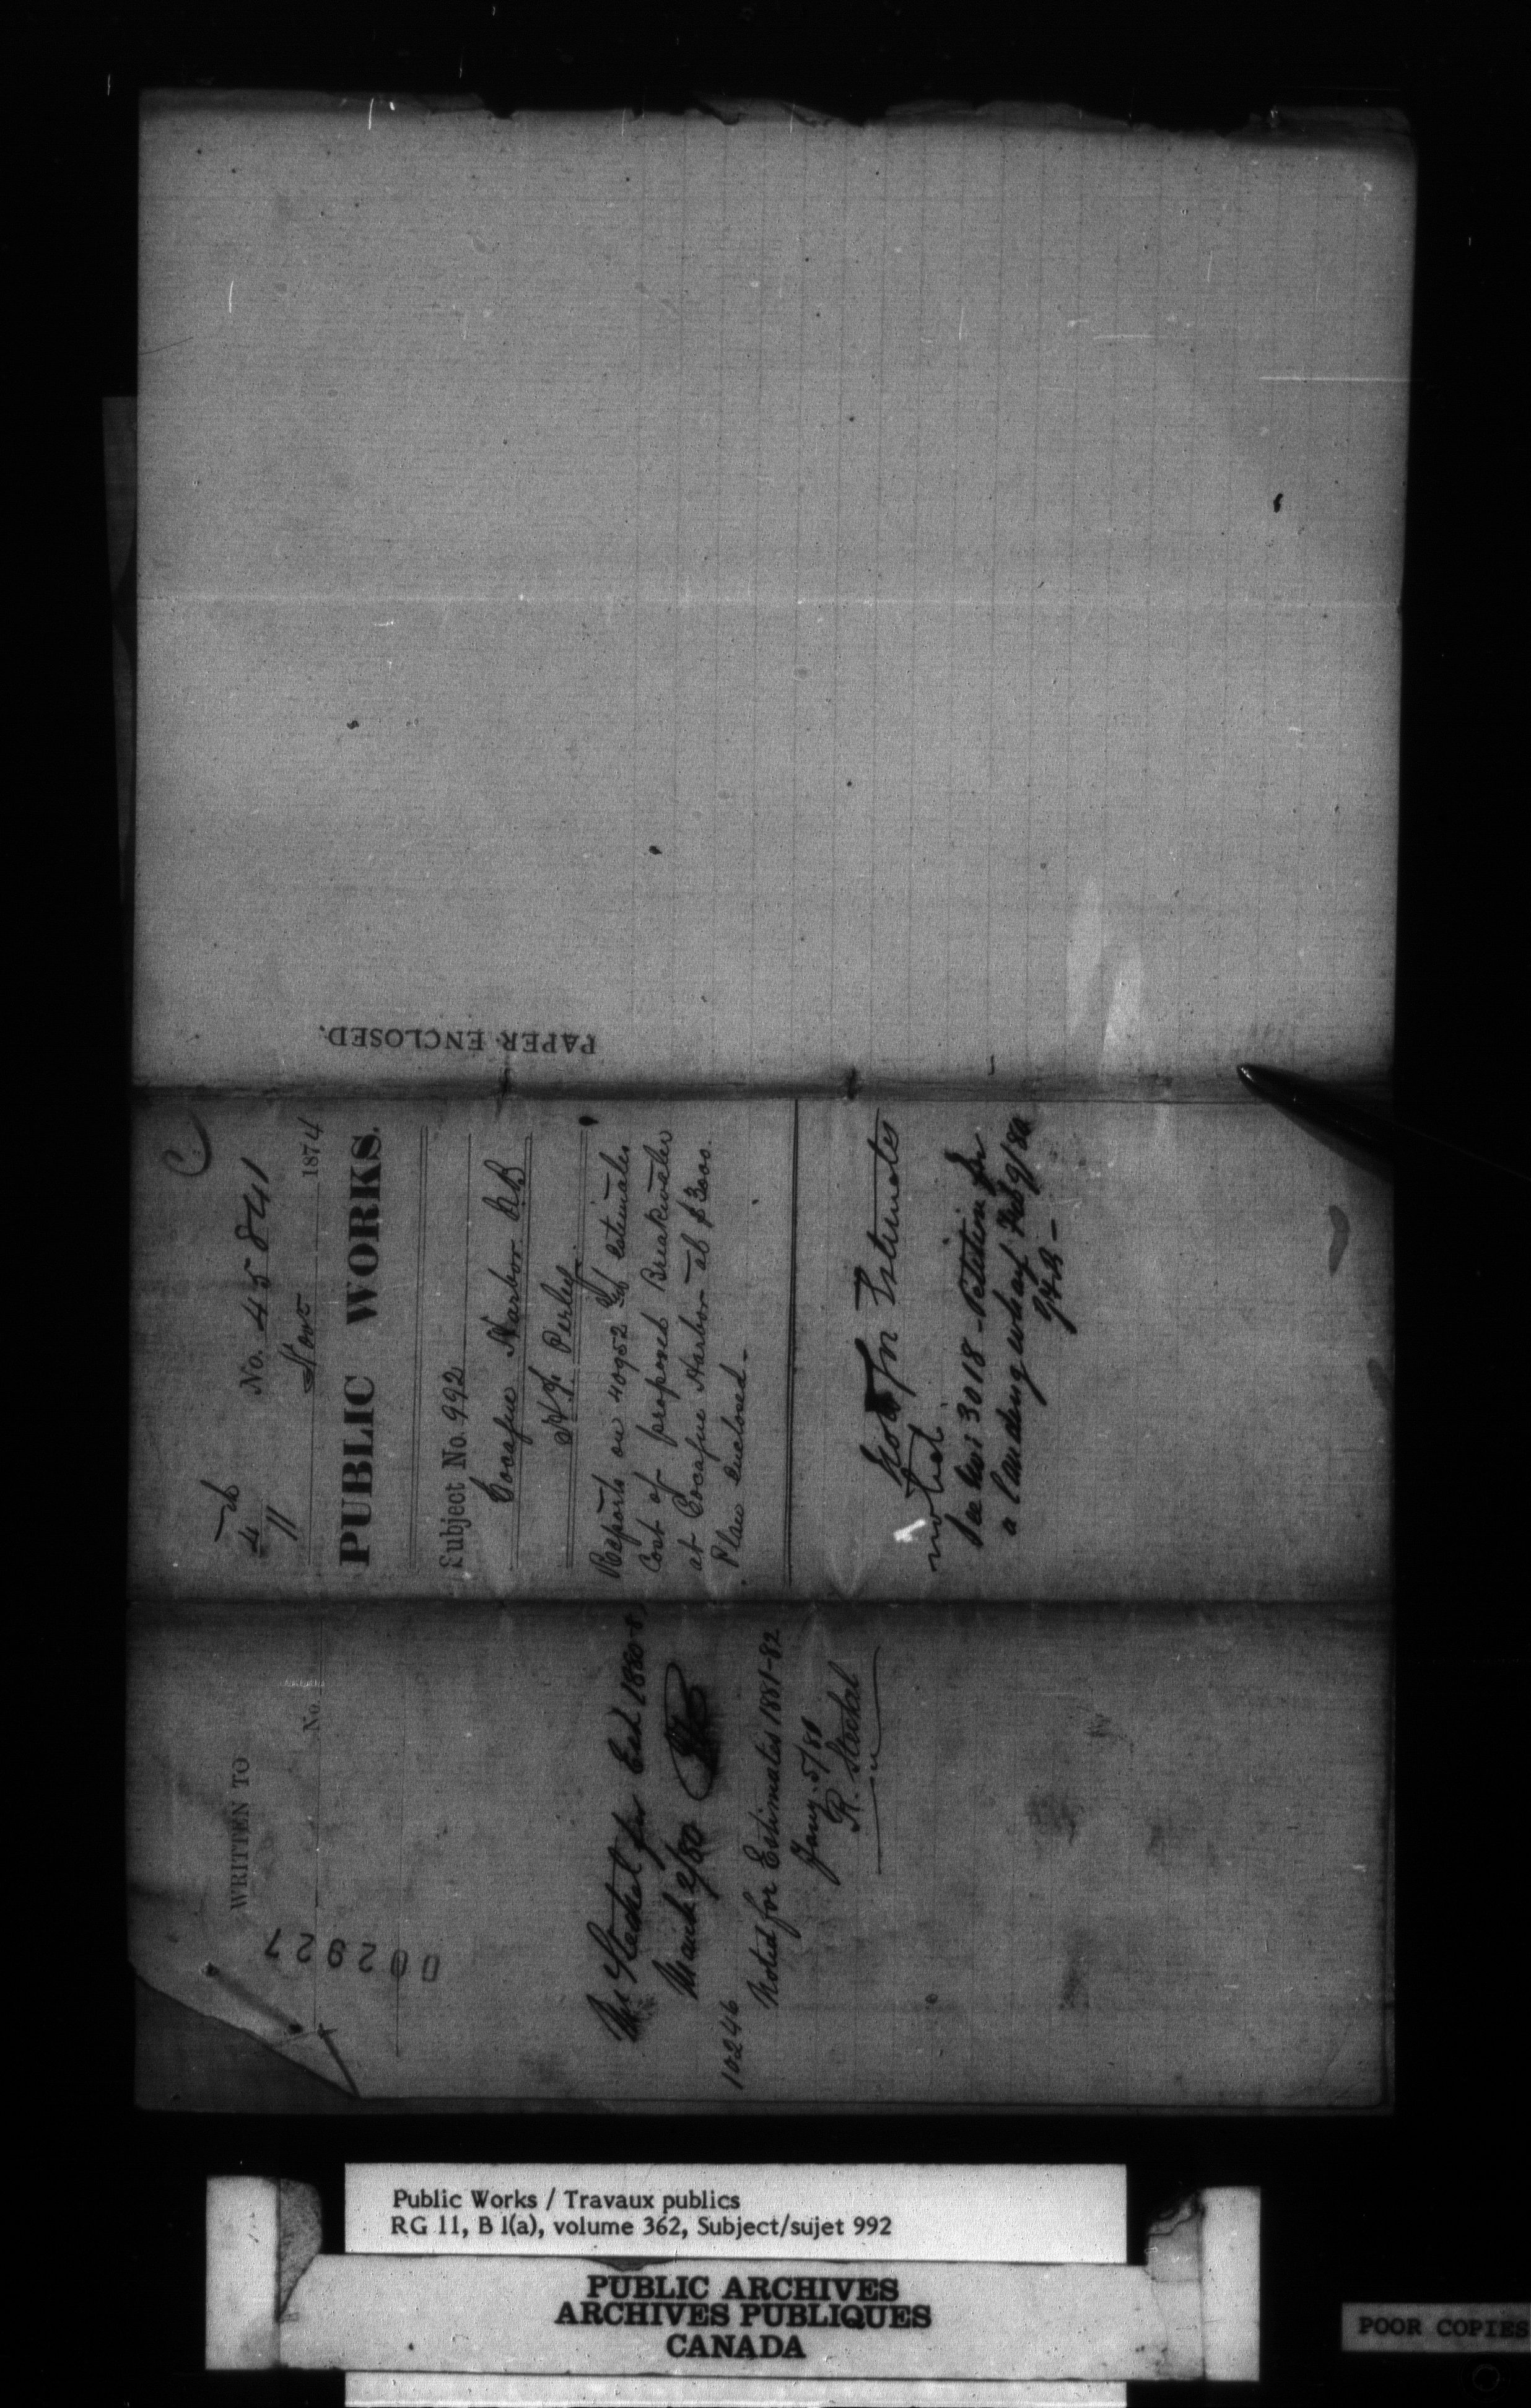 PAPER ENCLOSED.
C
4
11
No. 45841
Nov 1874
PUBLIC WORKS.
Subject No. 992
Cocagne Harbor N.B
H.F. Perley
Reports on 40952 estimates
Cost of proposed Breakwater
at Cocagne Harbor at $3000.
Plan enclosed-
for Estimates
noted.
See No 3018 - Petition for
a landing wharf Feb 9/80
WRITTEN TO
No.
002927
Mr Steckel for Est 1880-81
March 2/80
10246
Noted for Estimates 1881-82
Jany. 5/81
R. Steckel
Public Works / Travaux publics
RG 11, B 1(a), volume 362, Subject/sujet 992
PUBLIC ARCHIVES
ARCHIVES PUBLIQUES
CANADA
POOR COPIES